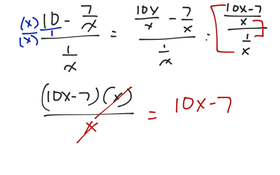 (x)/(x) (10/1 - 7/x)/(1/x) = (10x/x - 7/x)/(1/x) = ((10x-7)/x)/(1/x)
((10x-7)(x))/x = 10x-7